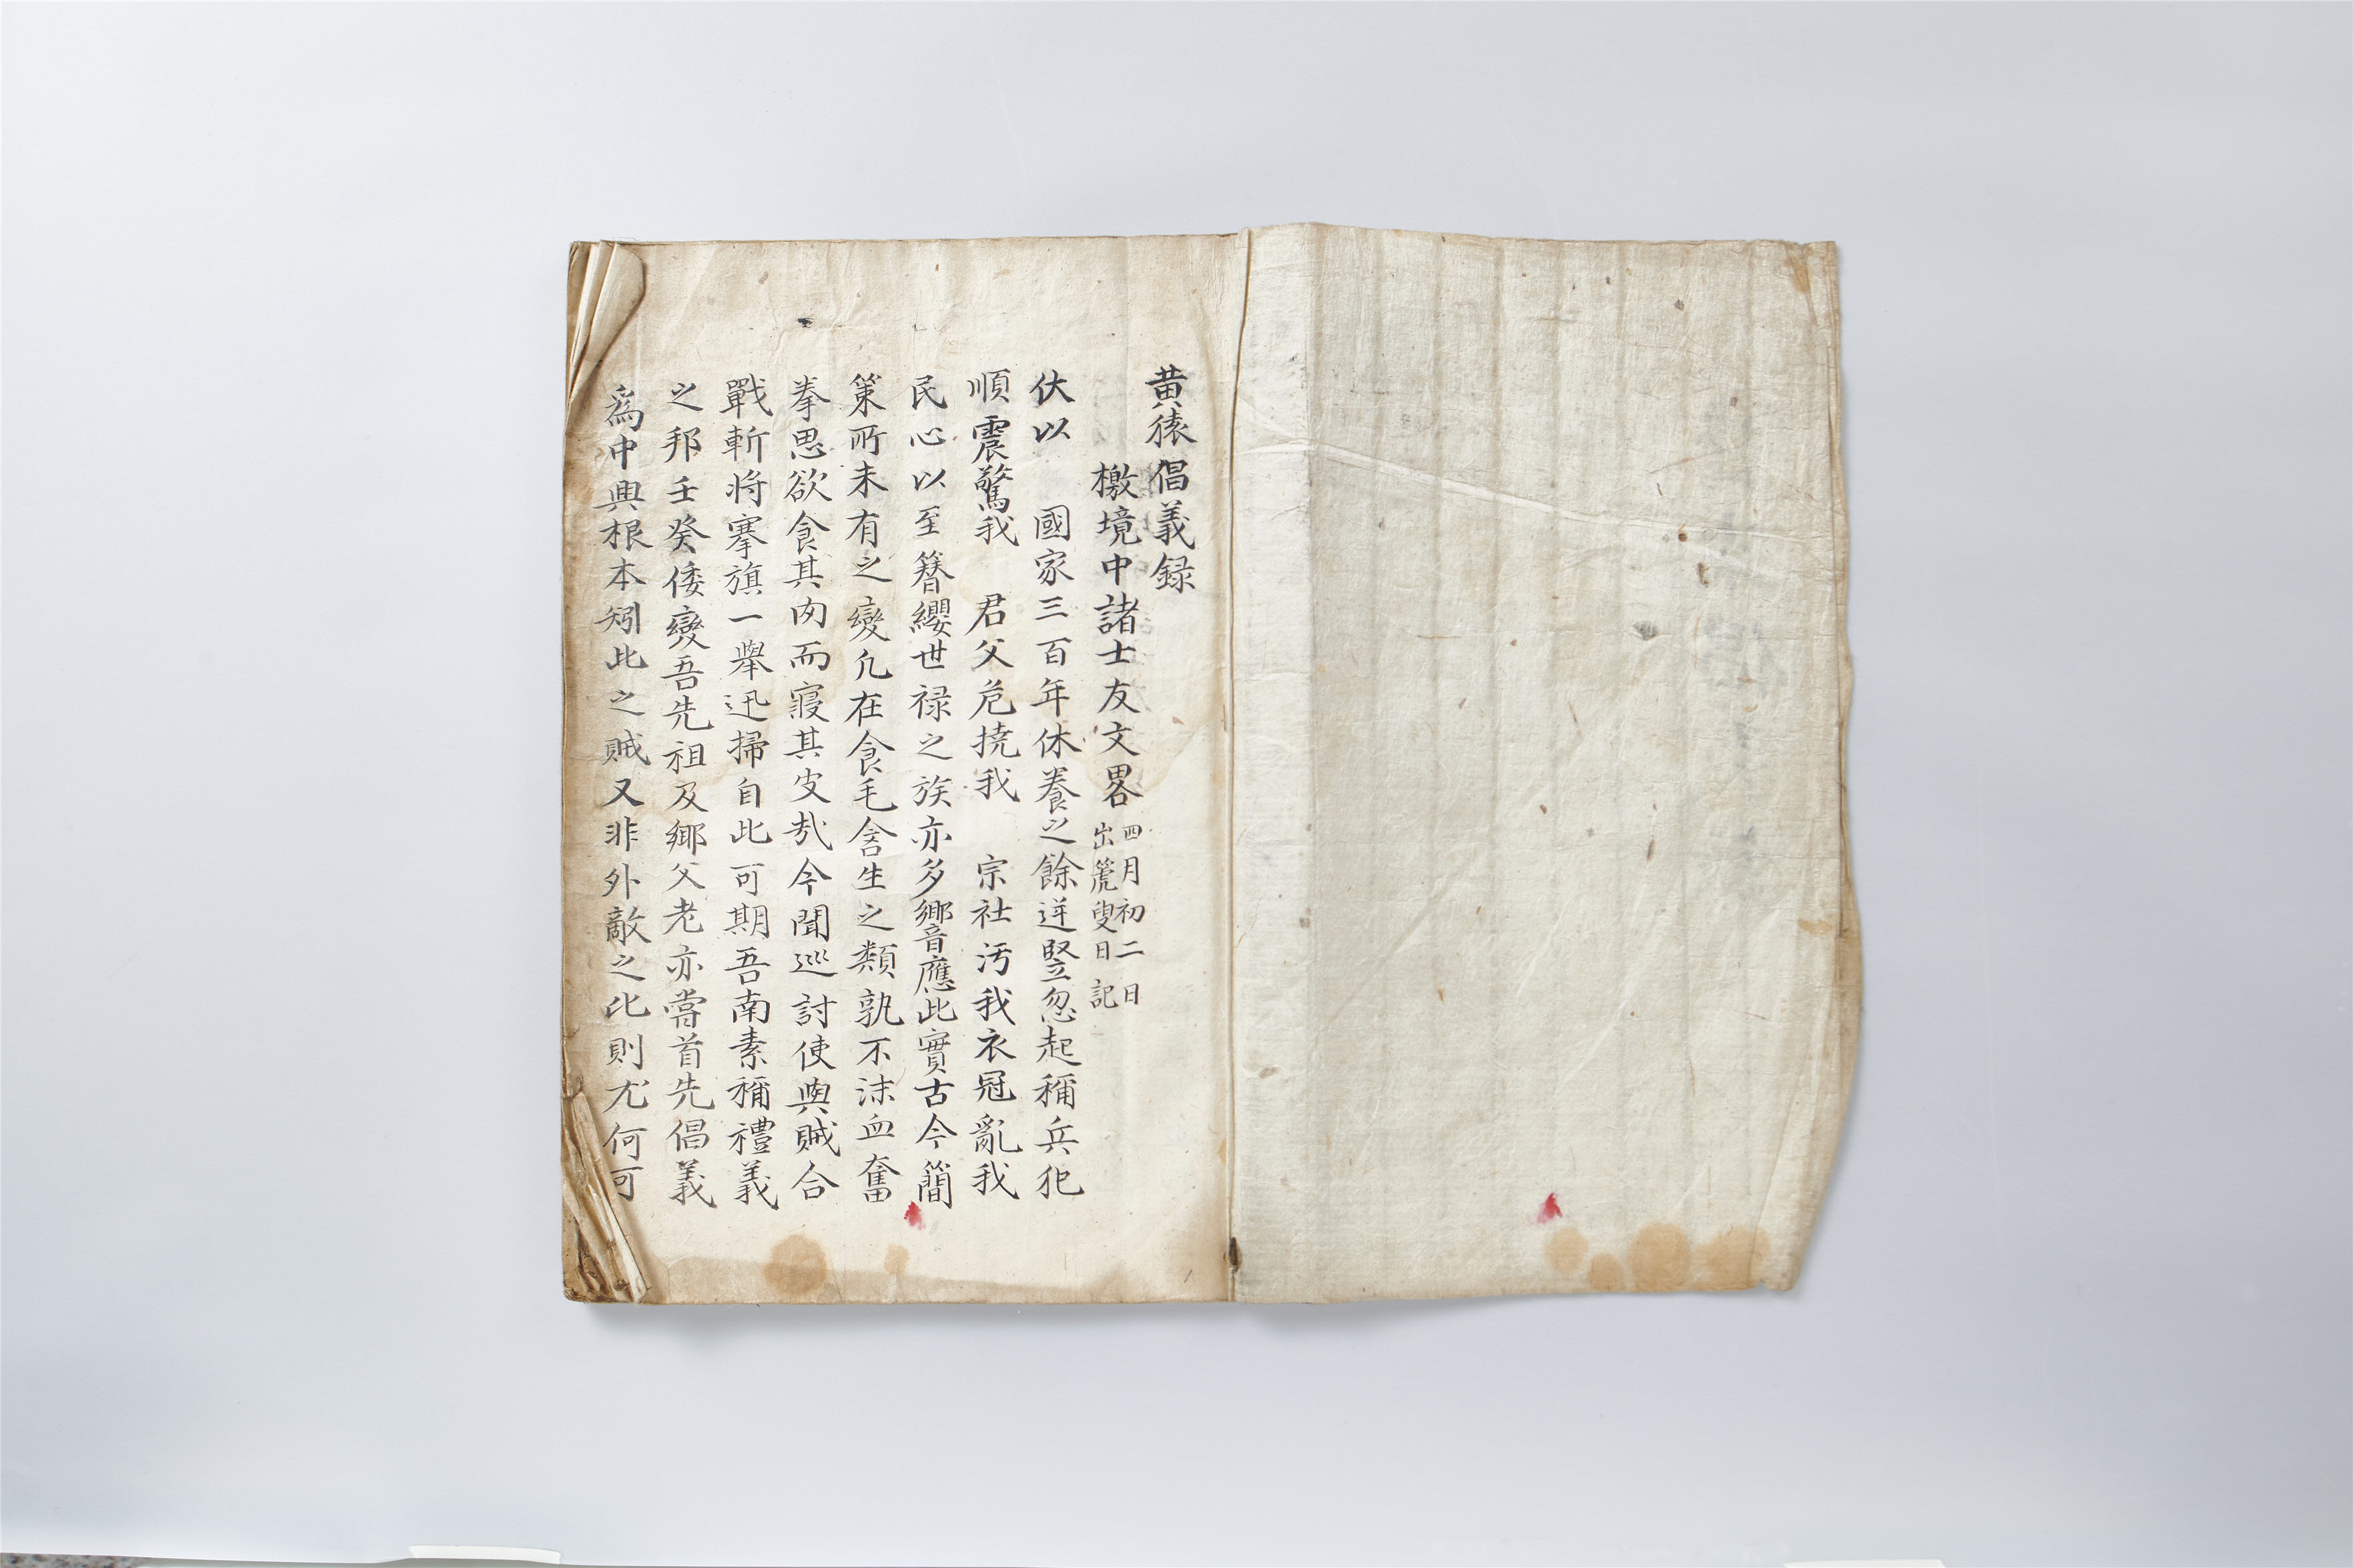 黄猿倡義録
檄境中諸士友文畧 四月初二日
出篪叟日記
伏以 國家三百年休養之餘逆竪忽起稱兵犯
順震驚我 君父危撓我 宗社汚我衣冠亂我
民心以至簪纓世禄之族亦多嚮應此實古今簡
策所未有之變凢在食毛含生之類孰不沫血奮
拳思欲食其肉而寢其皮㢤今聞巡討使與賊合
戰斬將搴旗一舉迅掃自此可期吾南素稱禮義
之邦壬癸倭變吾先祖及鄉父老亦嘗首先倡義
爲中興根本矧此之賊又非外敵之比則尤何可